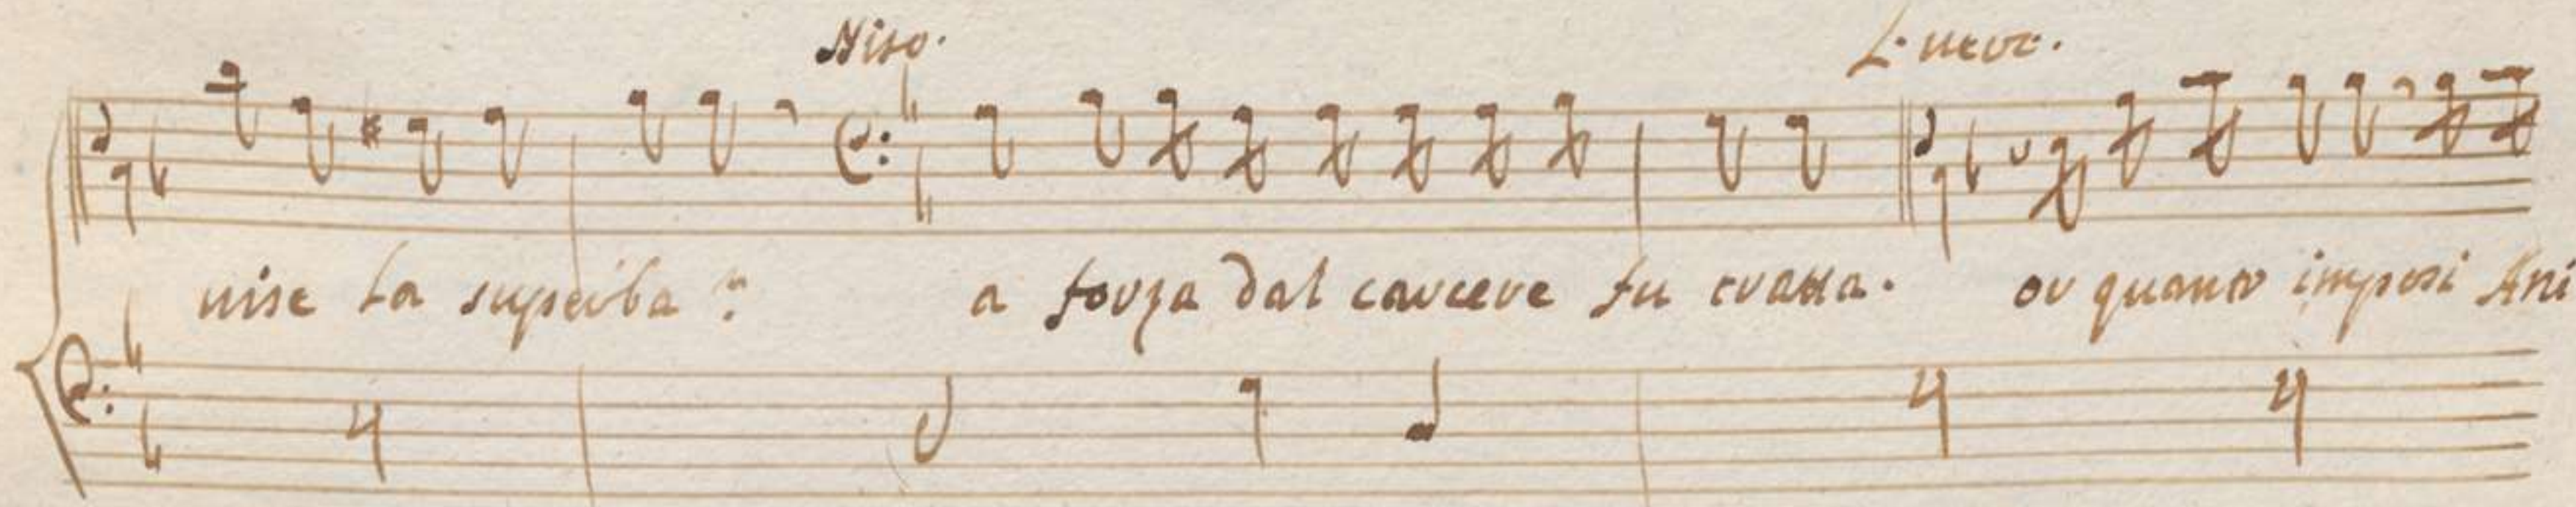 Niso. L. nero.
nise la superba? a forza dal carcere fu tratta. or quanto imposi Ani